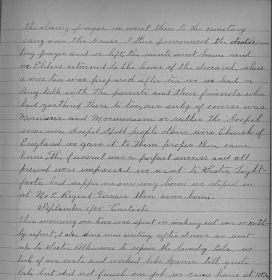 the closing prayer we went then to the cemetery
sang over the grave & then pronounced the dedica-
tory prayer and we left, the saints went home and
we Elders returned to the home of the deceased, where
a nice tea was prepared after tea we had a
long talk with the parents and their friends who
had gathered there to tea, our only of course was
Mormons and Mormonism or rather the Gospel
some were Gospel Hall people others were Church of
England we gave it to them proper then came
home the funeral was a perfect success and all
present were impressed we went to Sister Light-
foots had supper on our way home we stoped in
at Regent Terrace then came home.
September 1/05 Carlisle
this morning our time was spent in making out our month-
ly report, I also done some writing after dinner we went
up to Sister to repair the laundry tubs, we
took of our coats and worked like till quite
late but did not finish our job we came home at